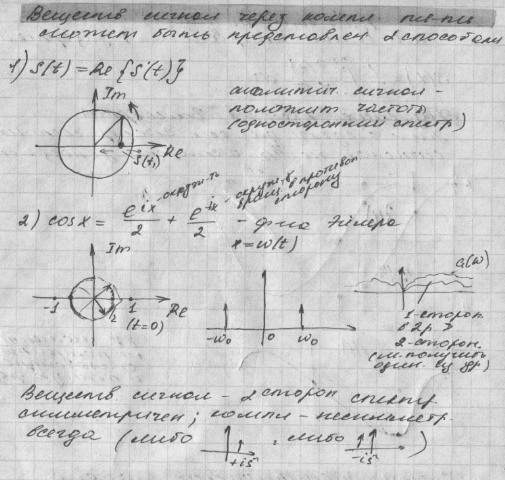 Веществ. сигнал через компл. пл-ти
может быть представлен 2 способами
1) S(t) = Re {Ṡ(t)}
Im
аналитич. сигнал -
положит. частоты
(односторонний спектр)
Re
S(t₁)
2) cos x = e^{ix}/2 + e^{-ix}/2 - ф-ла Эйлера
окружн-ть
окружн-ть вращ. в противоп. сторону
x = w(t)
Im
-1
1
Re
(t=0)
-w₀ 0 w₀
G(w)
1-сторон.
в 2р. >
2-сторон.
(м. получить
один. из др.)
Веществ. сигнал - 2 сторон. спектр
симметричен; компл - несимметр.
всегда (либо +iŝ, либо -iŝ)